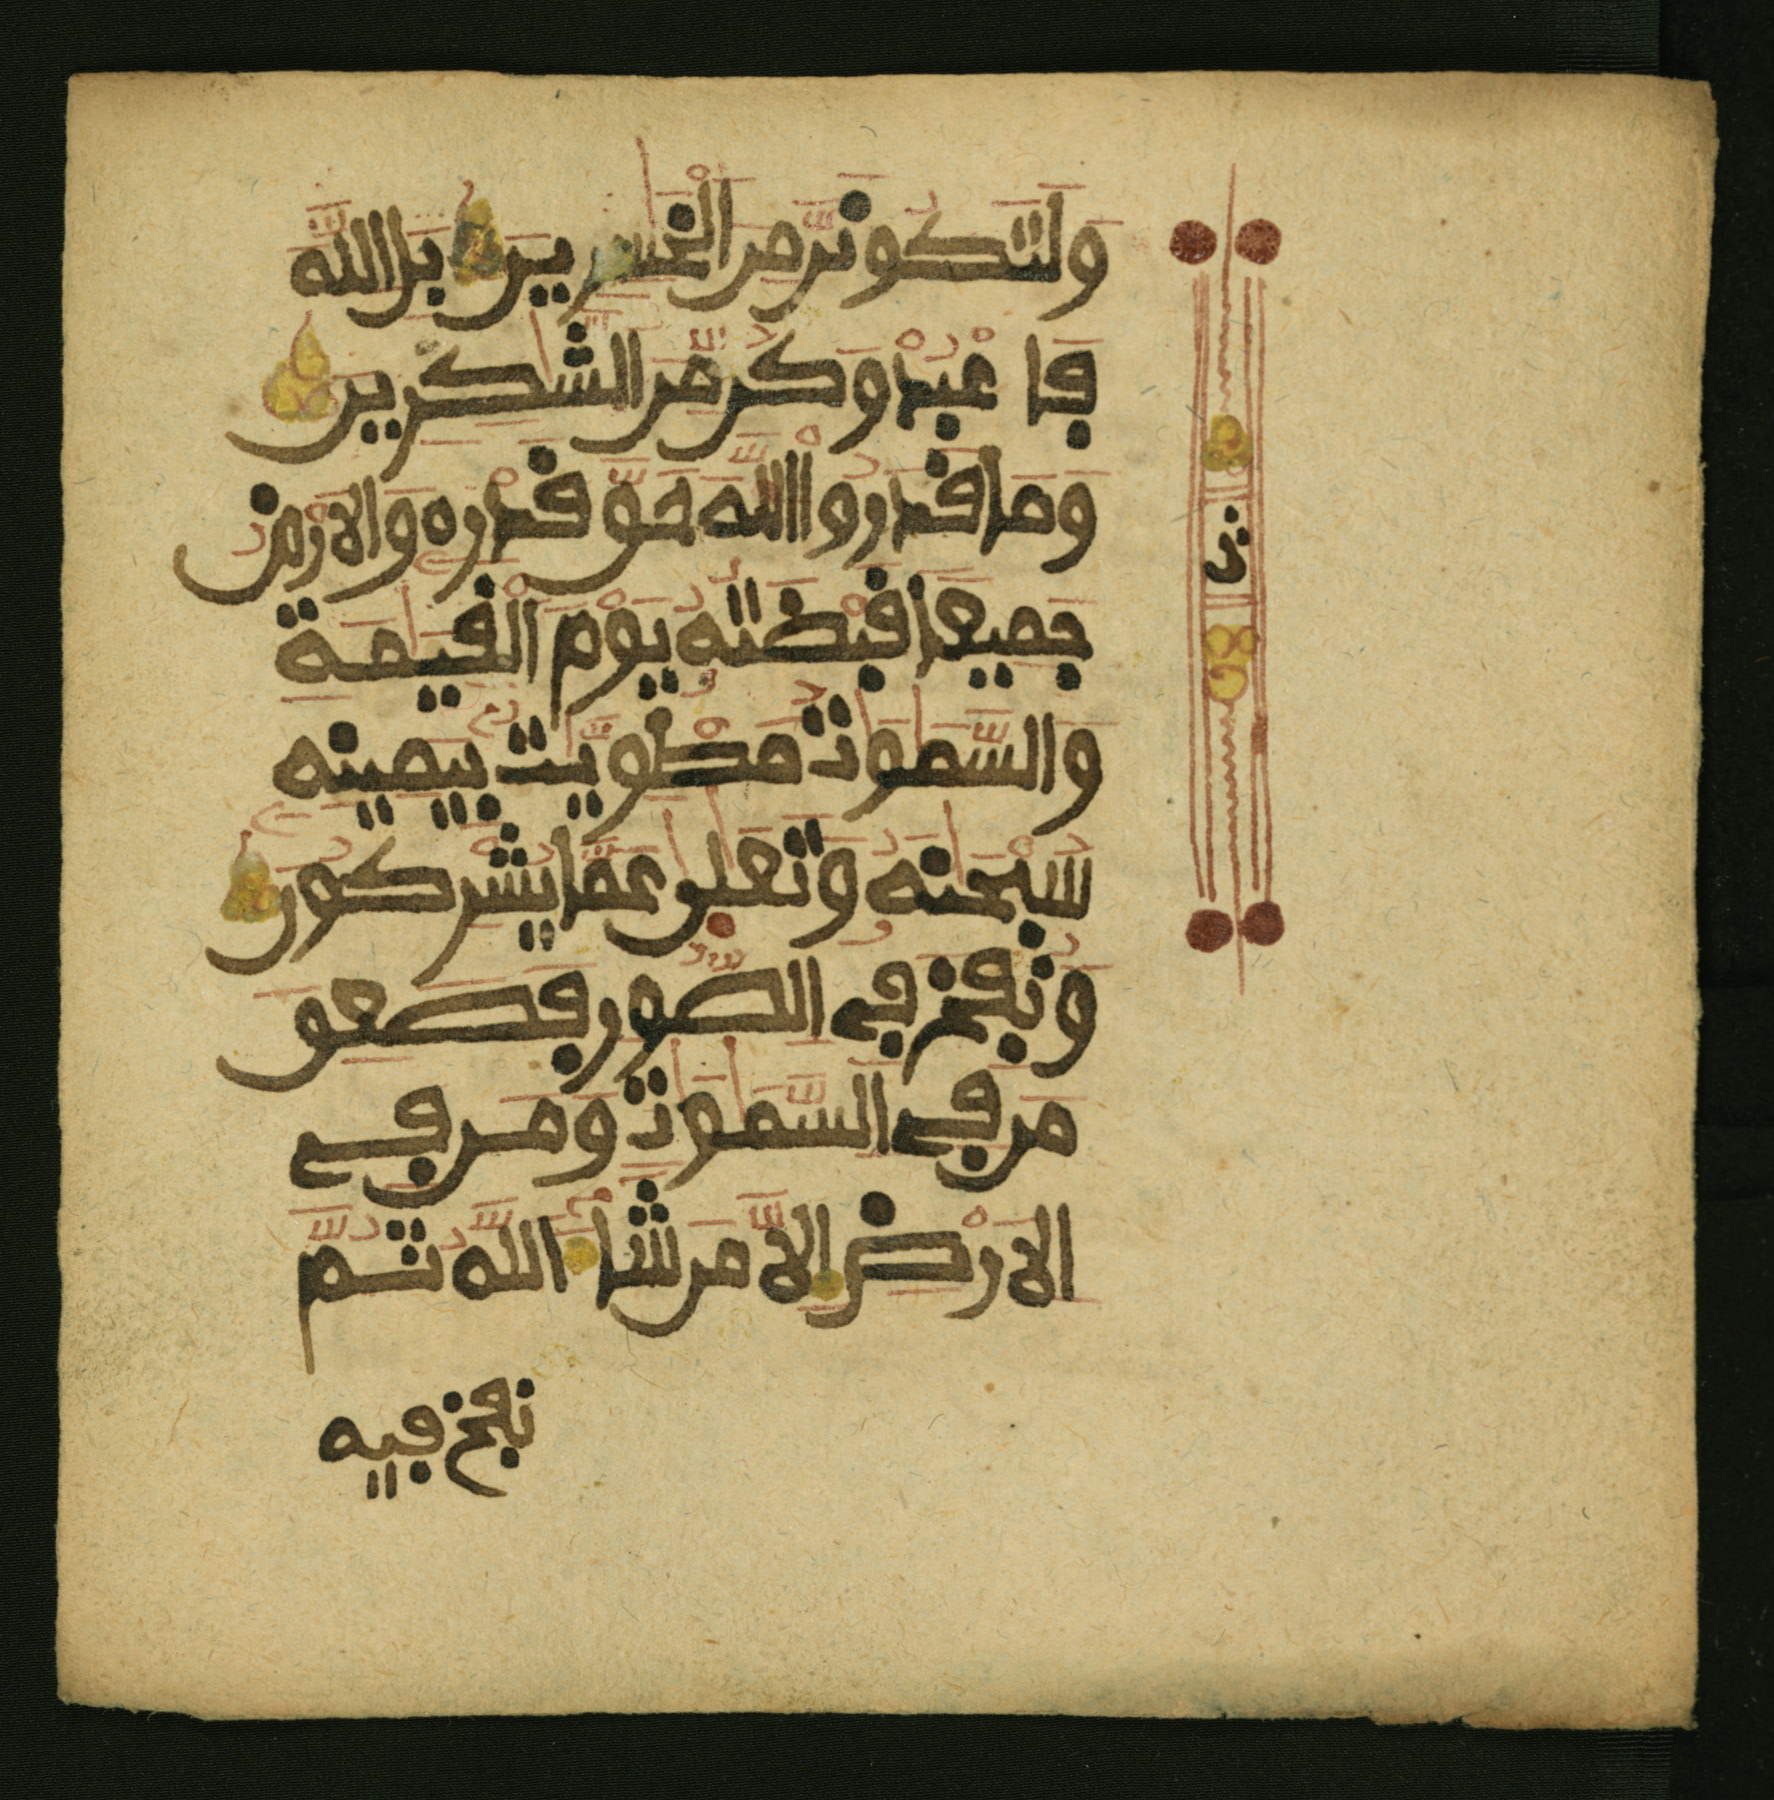 وَلَتَكُونَنَّ مِنَ ٱلْخَٰسِرِينَ بَلِ ٱللَّهَ
فَاعْبُدْ وَكُن مِّنَ ٱلشَّٰكِرِينَ
وَمَا قَدَرُواْ ٱللَّهَ حَقَّ قَدْرِهِۦ وَٱلَارْضُ
جَمِيعاً قَبْضَتُهُۥ يَوْمَ ٱلْقِيَٰمَةِ
وَٱلسَّمَٰوَٰتُ مَطْوِيَّٰتٌۢ بِيَمِينِهِۦ
سُبْحَٰنَهُۥ وَتَعَٰلَىٰ عَمَّا يُشْرِكُونَ
وَنُفِخَ فِي ٱلصُّورِ فَصَعِقَ
مَن فِي ٱلسَّمَٰوَٰتِ وَمَن فِي
ٱلَارْضِ إِلَّا مَن شَآءَ ٱللَّهُ ثُمَّ
نفخ فيه